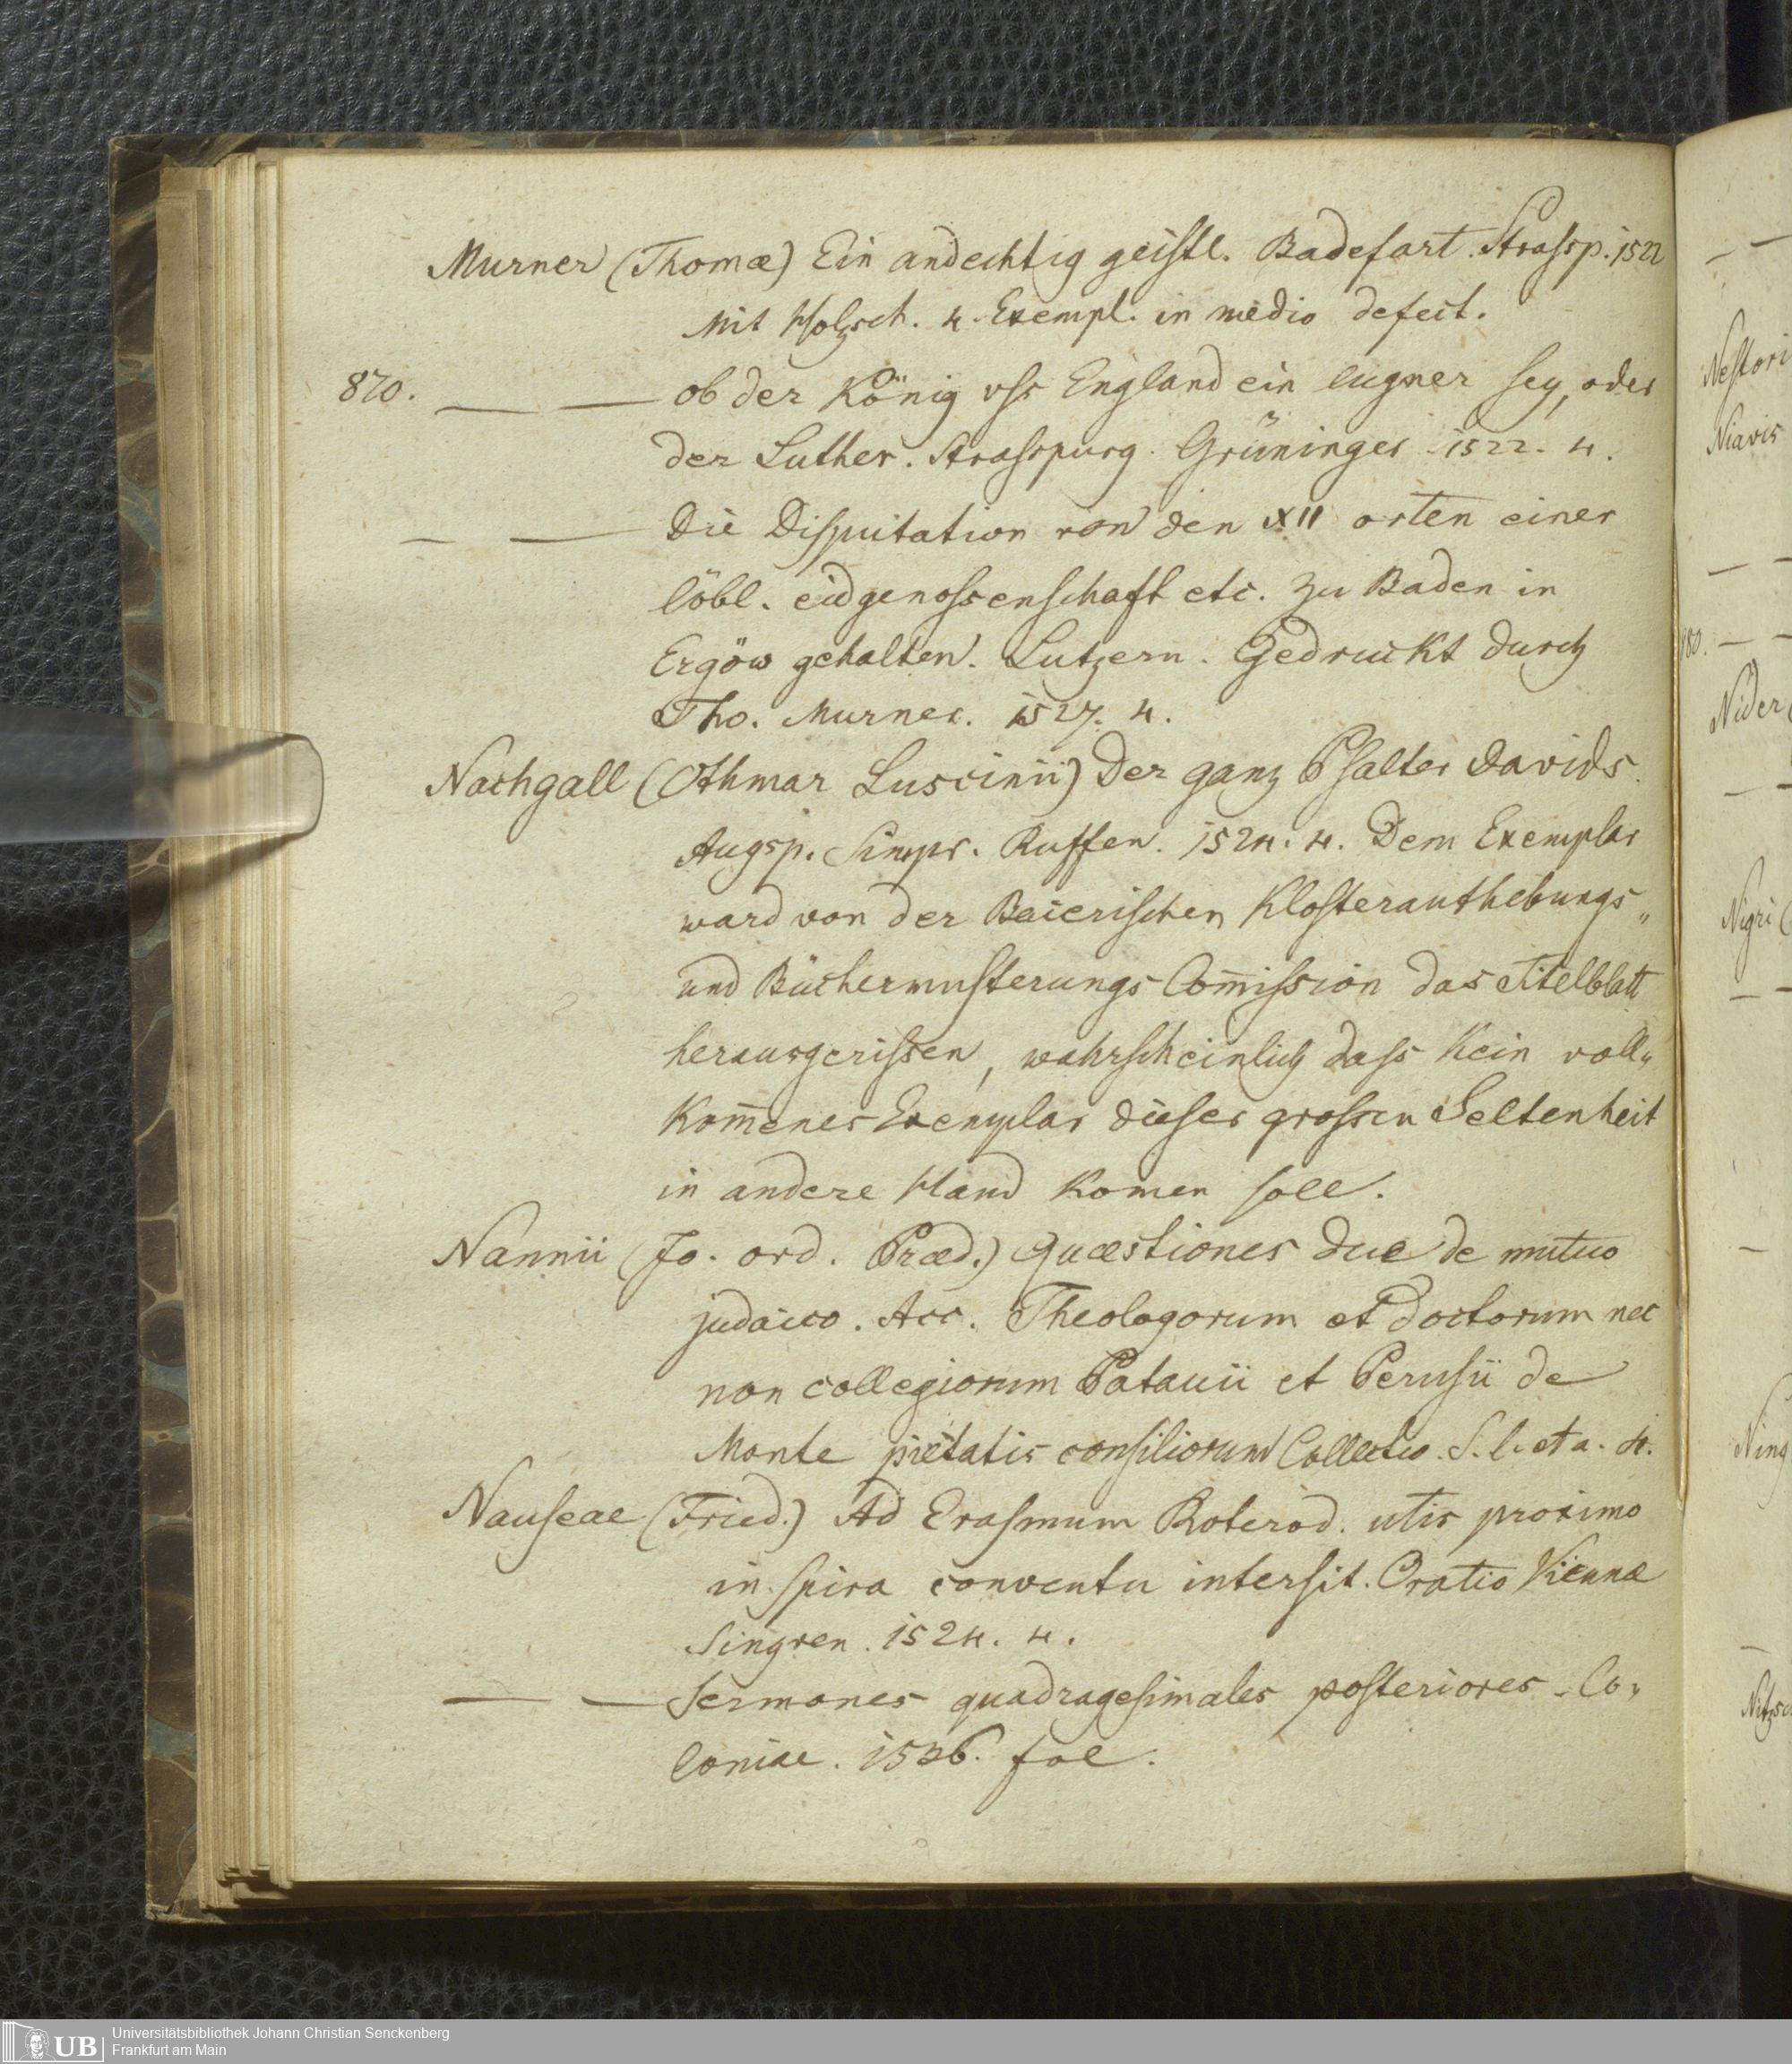 Murner (Thomæ) Ein andechtig geistl. Badefart. Strassp. 1522
Mit Holzsch. 4. Exempl. in medio defect.
870. — — ob der König uss England ein lugner sey, oder
der Luther. Strasspurg. Grüninger 1522. 4.
— — Die Disputation von den XII orten einer
löbl. eidgenossenschaft etc. zu Baden in
Ergöw gehalten. Lutzern. Gedruckt durch
Tho. Murner. 1527. 4.
Nachgall (Othmar Luscinii) Der ganz Psalter Davids.
Augsp. Simpr. Ruffen. 1524. 4. Dem Exemplar
ward von der Baierischen Klosteraufhebungs„
und Büchermusterungs Com̄ission das Titelblatt
herausgerissen, wahrscheinlich dass kein voll„
kom̄enes Exemplar dieser grossen Seltenheit
in andere Hand komen soll.
Nannii (Jo. ord. Præd.) Quæstiones due de mutuo
judaico. Acc. Theologorum et doctorum nec
non collegiorum Patauii et Perusii de
Monte pietatis consiliorum Collectio. S. l. et a. 4.
Nauseae (Fried.) Ad Erasmum Roterod. utis proximo
in Spira conventu intersit. Oratio Viennæ
Singren. 1524. 4.
— — Sermones quadragesimales posteriores. Co„
loniae. 1536. fol.
Nestori
Niavis
880.
Nider
Nigri
Ning
Nitzsc
UB
Universitätsbibliothek Johann Christian Senckenberg
Frankfurt am Main